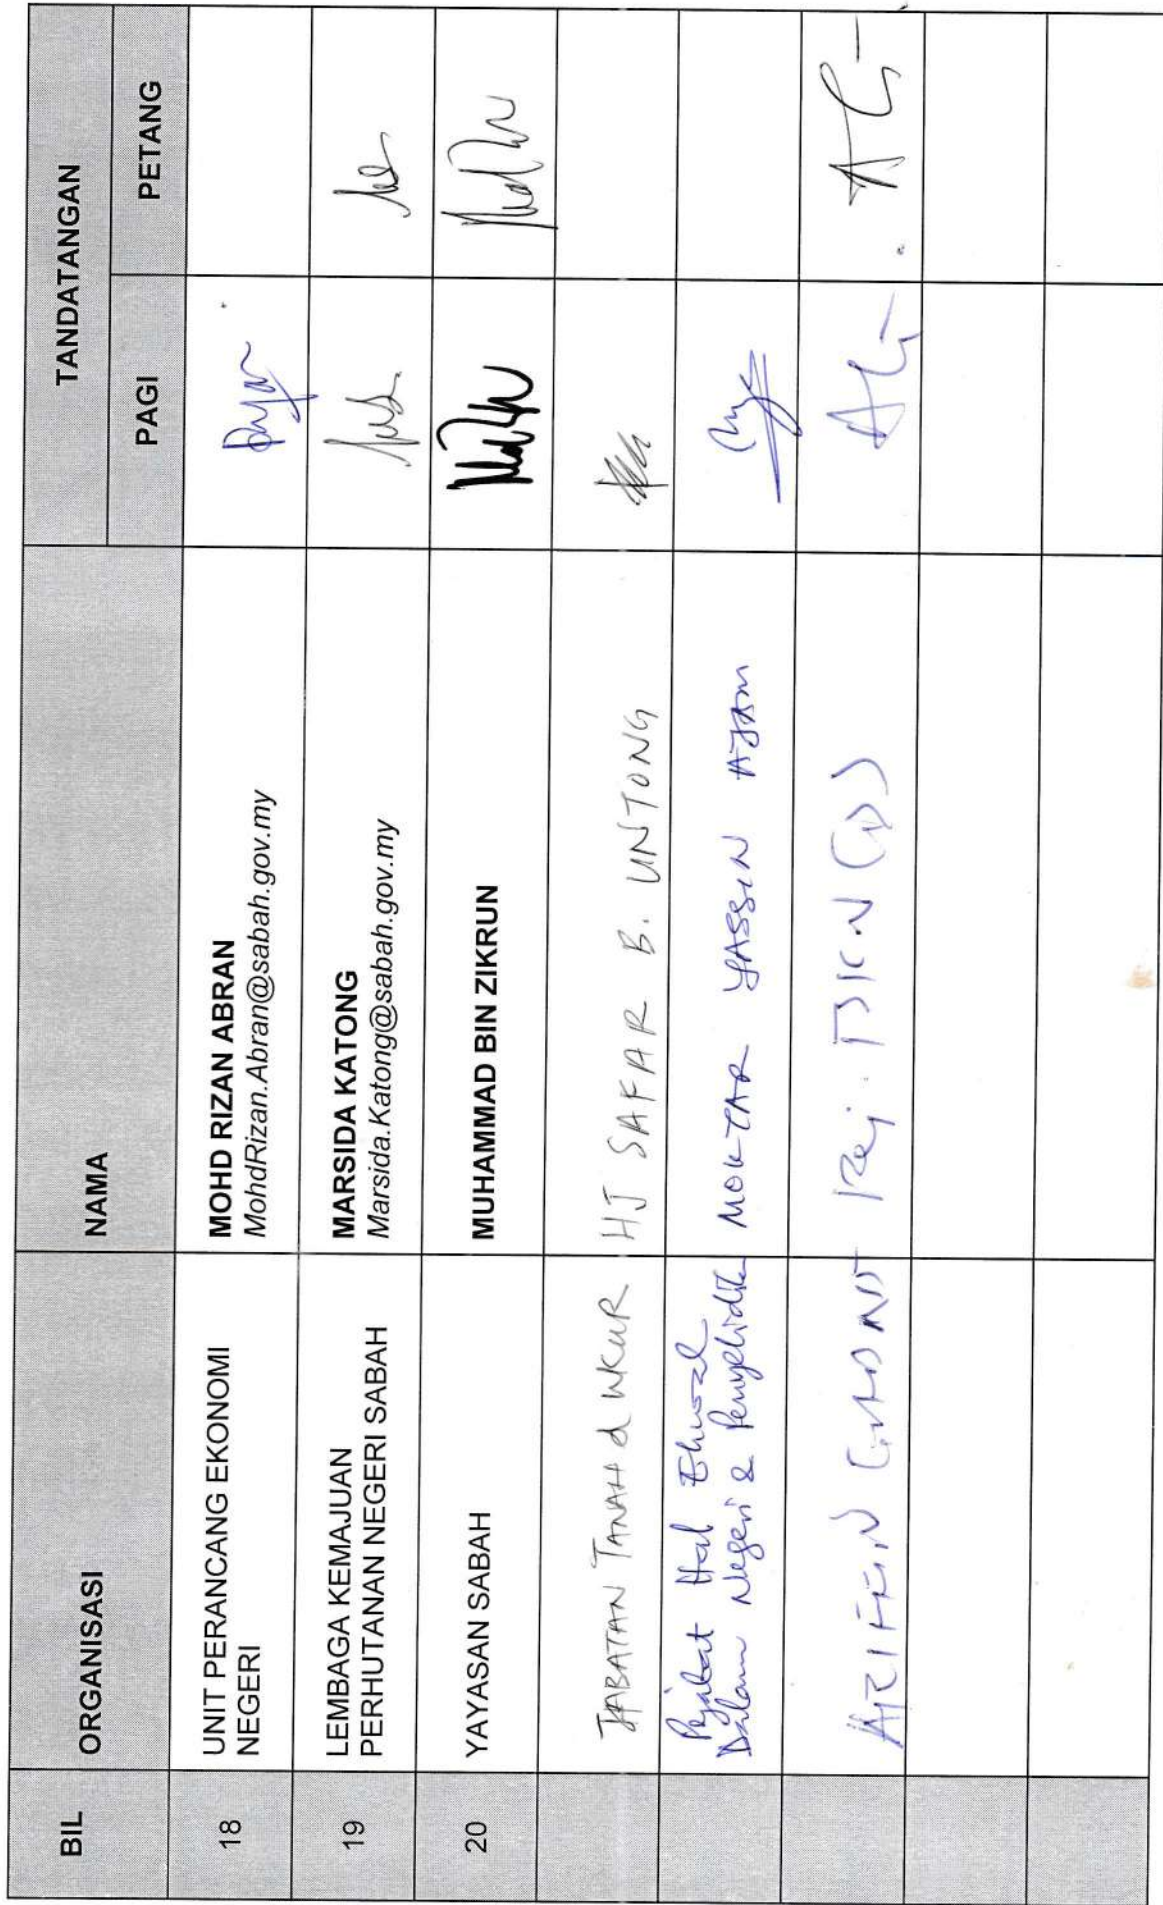 BIL ORGANISASI NAMA TANDATANGAN
PAGI PETANG
18 UNIT PERANCANG EKONOMI
NEGERI
MOHD RIZAN ABRAN
MohdRizan.Abran@sabah.gov.my
19 LEMBAGA KEMAJUAN
PERHUTANAN NEGERI SABAH
MARSIDA KATONG
Marsida.Katong@sabah.gov.my
20 YAYASAN SABAH
MUHAMMAD BIN ZIKRUN
JABATAN TANAH & UKUR HJ SAFAR B. UNTONG
Pejabat Hal Ehwal
Dalam Negeri & Penyelidikan
MOKTAR YASSIN AJAM
ARIFFIN